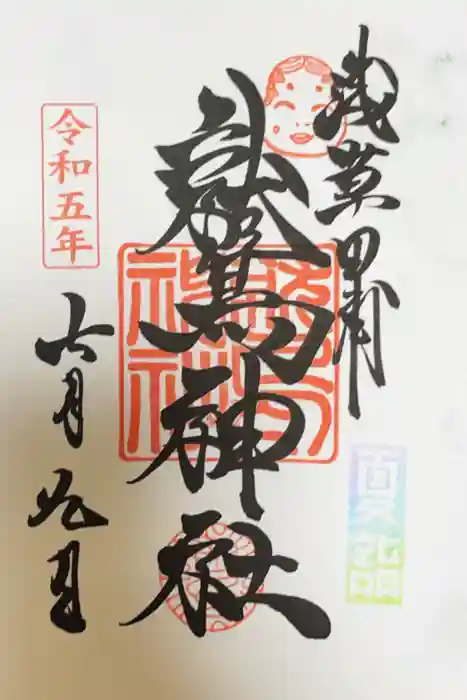 浅草田甫
鷲神社
令和五年
六月九日
夏詣